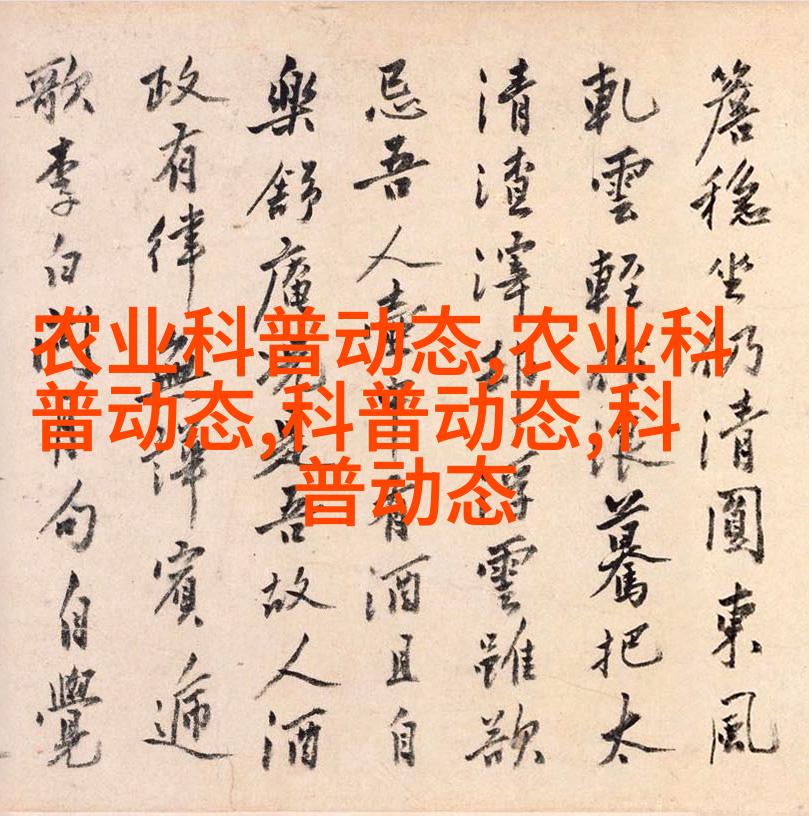 农业科普动态,农业科
普动态,科普动态,科
普动态
簷穩坐清圓東風
軋雲輕浪驀把太
清渣滓雲雖欲
忌吾人有酒且自
樂舒庵吾故人酒
政有律賓遞
歌李白句自覺